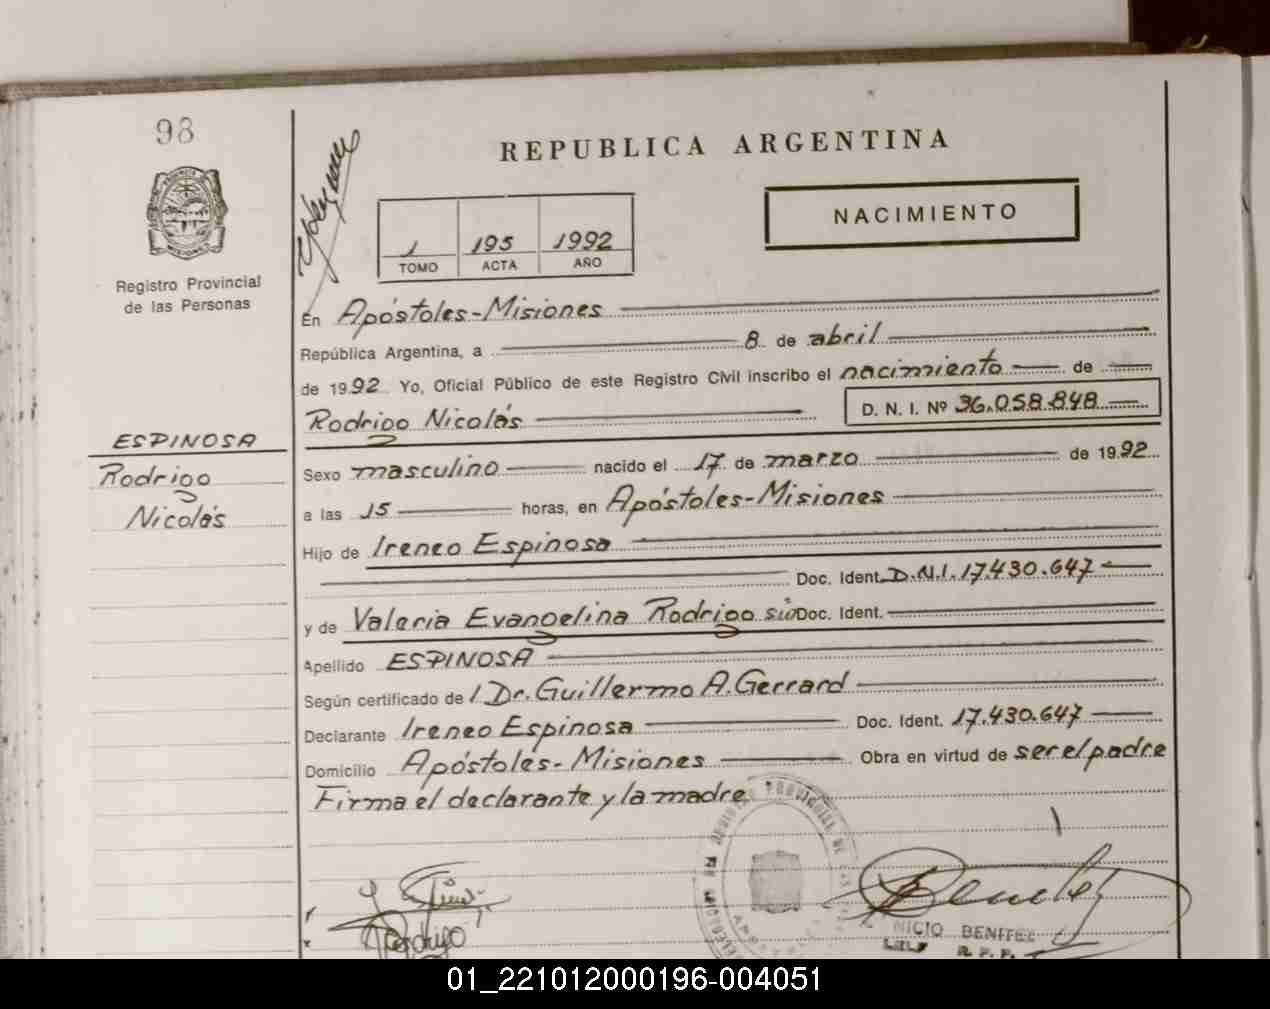 98
REPUBLICA ARGENTINA
NACIMIENTO
1 195 1992
TOMO ACTA AÑO
Registro Provincial
de las Personas
En Apóstoles-Misiones
República Argentina, a 8 de abril
de 1992 Yo, Oficial Público de este Registro Civil inscribo el nacimiento de
Rodrigo Nicolás D. N. I. Nº 36.058.848
ESPINOSA
Rodrigo
Nicolás
Sexo masculino nacido el 17 de marzo de 1992
a las 15 horas, en Apóstoles-Misiones
Hijo de Ireneo Espinosa
Doc. Ident. D.N.I. 17.430.647
y de Valeria Evangelina Rodrigo s/n Doc. Ident.
Apellido ESPINOSA
Según certificado de l Dr. Guillermo A. Gerrard
Declarante Ireneo Espinosa Doc. Ident. 17.430.647
Domicilio Apóstoles-Misiones Obra en virtud de ser el padre
Firma el declarante y la madre
NICIO BENITEZ
01_221012000196-004051